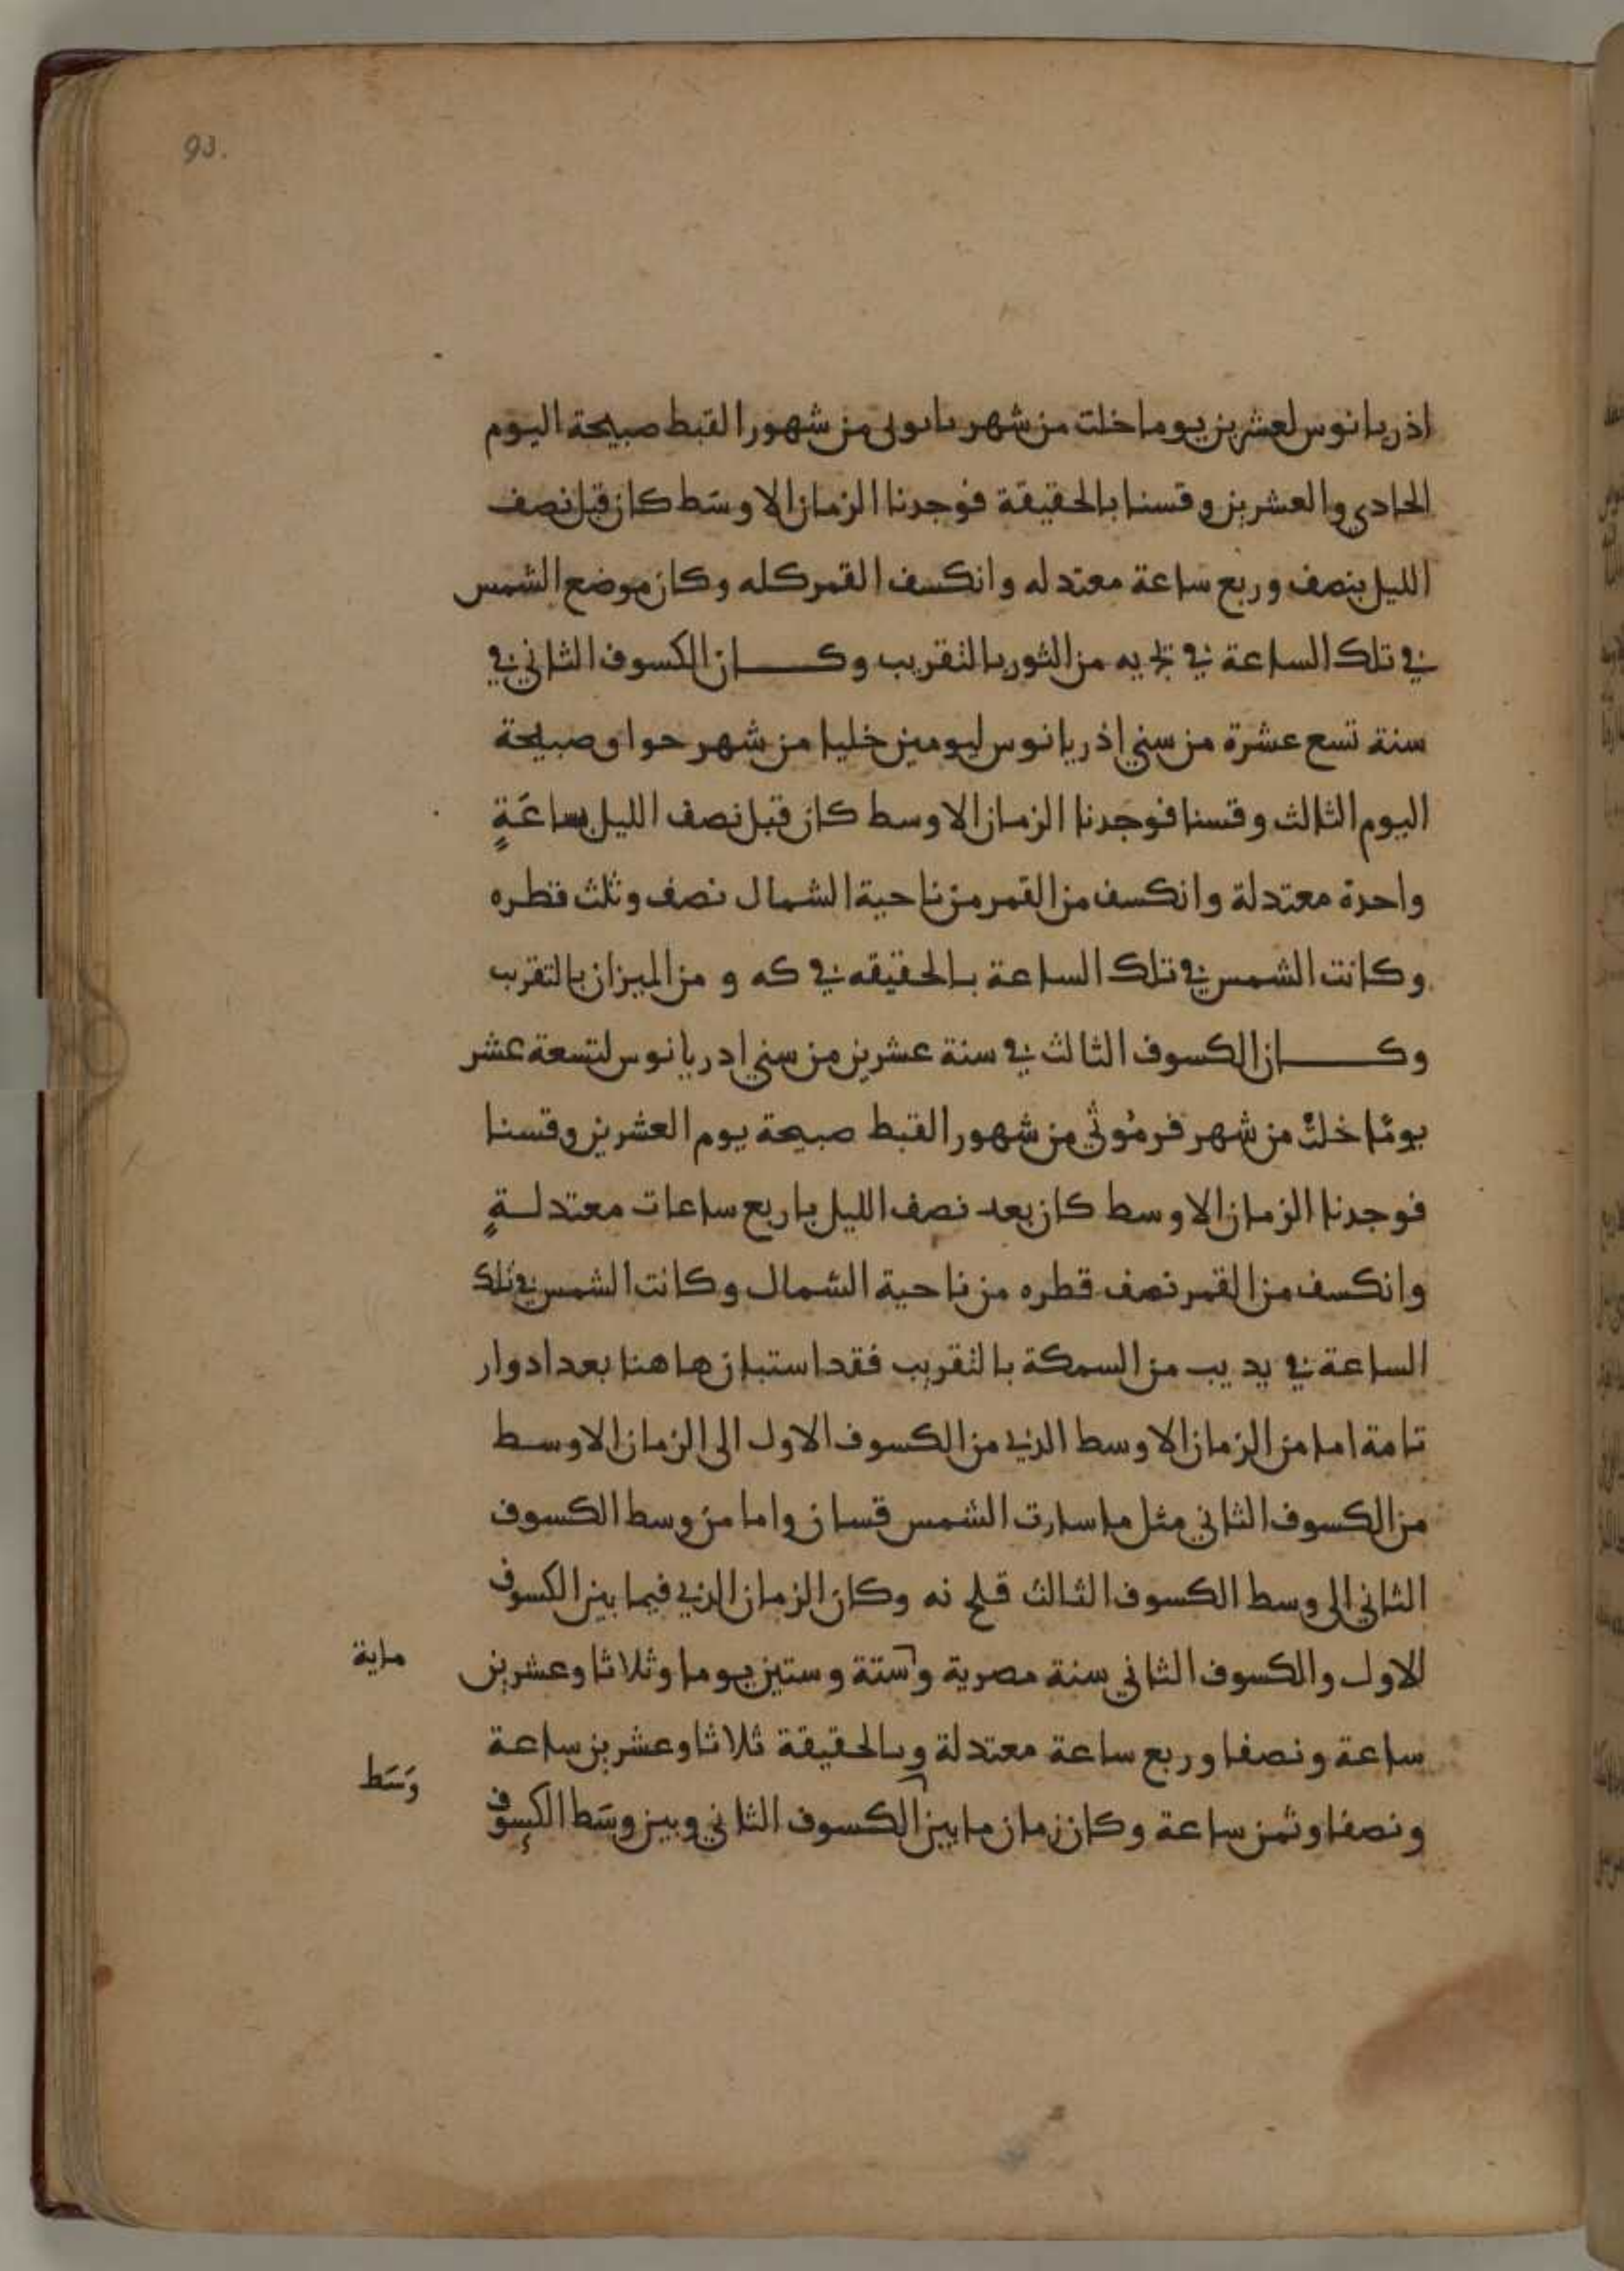 93.
اذريانوس لعشرين يوما خلت من شهر باوني من شهور القبط صبيحة اليوم
الحادي والعشرين وقسنا بالحقيقة فوجدنا الزمان الاوسَط كان قبل نصف
الليل بنصف وربع ساعة معتدله وانكسف القمر كله وكان موضع الشمس
في تلك الساعة في يه من الثور بالتقريب وكـــان الكسوف الثاني في
سنة تسع عشرة من سني اذريانوس ليومين خليا من شهر حواو صبيحة
اليوم الثالث وقسنا فوجدنا الزمان الاوسط كان قبل نصف الليل بساعَةٍ
واحدة معتدلة وانكسف من القمر من ناحية الشمال نصف وثلث قطره
وكانت الشمس في تلك الساعة بالحقيقه في كه و من الميزان بالتقرب
وكـــان الكسوف الثالث في سنة عشرين من سني ادريانوس لتسعة عشر
يومًا خلت من شهر فرمُوثي من شهور القبط صبيحة يوم العشرين وقسنا
فوجدنا الزمان الاوسط كان بعد نصف الليل باربع ساعات معتدلــةٍ
وانكسف من القمر نصف قطره من ناحية الشمال وكانت الشمس في تلك
الساعة في يد يب من السمكة بالتقريب فقد استبان هاهنا بعد ادوار
تامة اما من الزمان الاوسط الذي من الكسوف الاول الى الزمان الاوسط
من الكسوف الثاني مثل ما سارت الشمس قسا ن واما من وسط الكسوف
الثاني الى وسط الكسوف الثالث قلح نه وكان الزمان الذي فيما بين الكسوف
الاول والكسوف الثاني سنة مصرية وستة وستين يوما وثلاثا وعشرين
ماية
ساعة ونصفا وربع ساعة معتدلة وبالحقيقة ثلاثا وعشرين ساعة
ونصفا وثمن ساعة وكان زمان ما بين الكسوف الثاني وبين وسَط الكسوف
وَسَط